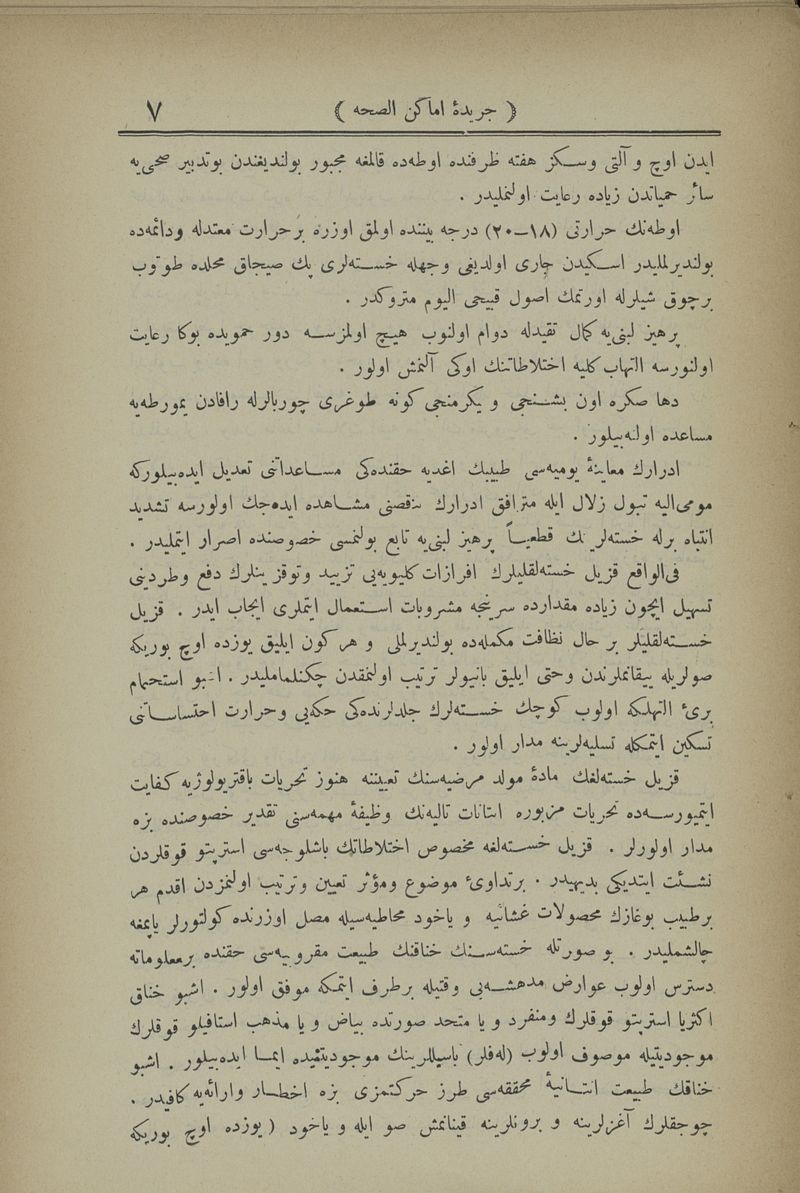 ( جريدۀ اماكن الصحه ) ٧
ايدن اوچ و آلتى وسكز هفته ظرفنده اوطه‌ده قالمغه مجبور بولنديغندن بوتدبير صحى‌يه
سائر حمياتدن زياده رعايت اولنمليدر .
اوطه‌نك حرارتى (١٨—٢٠) درجه بيننده اولمق اوزره برحرارت معتدله ودائمه‌ده
بولنديرلمليدر اسكيدن جارى اولديغى وجهله خسته‌لرى پك صيجاق محلده طوتوب
برچوق شيلرله اورتمك اصول قبيحى اليوم متروكدر .
پرهيز لبنى‌يه كمال تقيدله دوام اولنوب هيچ اولمزسه دور حمويده بوكا رعايت
اولنورسه التهاب كليه اختلاطاتنك اوكى آلنمش اولور .
دها صكره اون بشنجى و يكرمنجى كونه طوغرى چوربالرله رافادن يمورطه‌يه
مساعده اولنه‌بيلور .
ادرارك معاينۀ يوميه‌سى طبيبك اغديه حقنده‌كى مساعداتنى تعديل ايده‌بيلوركه
مومى‌اليه تبول زلال ايله مترافق ادرارك تنقصنى مشاهده ايده‌جك اولورسه تشديد
انتباه برله خسته‌لرينك قطعياً پرهيز لبنى‌يه تابع بولنمسى خصوصنده اصرار ايتمليدر .
فى‌الواقع قزيل خسته‌لقليلرك افرازات كليويه‌يى تزييد وتوقزينلرك دفع وطردينى
تسهيل ايچون زياده مقدارده سرنجه مشروبات استعمال ايتملرى ايجاب ايدر . قزيل
خسته‌لقليلر بر حال نظافت مكمله‌ده بولنديرلملى و هركون ايليق يوزده اوچ بوريكه
صولريله ييقانملرندن وحتى ايليق بانيولر ترتيب اولنمقدن چكنلماملیدر . اشبو استحمام
برئ التهلكه اولوب كوچك خسته‌لرك جلدلرنده‌كى حكه‌يى وحرارت احتساساتنى
تسكين ايتمكله تسليه‌لرينه مدار اولور .
قزيل خسته‌لغك مادۀ مولد مرضيه‌سنك تعييننه هنوز تحريات باقتريولوژيه كفايت
ايتميورسه‌ده تحريات مزبوره انتانات تاليه‌نك وظيفۀ مهمه‌سنى تقدير خصوصنده بزه
مدار اولورلر . قزيل خسته‌لغه مخصوص اختلاطاتك باشلوجه‌سى استرپتو قوقلردن
نشئت ايتديكى بديهيدر . برتداوئ موضوع ومؤثر تعيين وترتيب اولنمزدن اقدم هر
برطبيب بوغازك محصولات غشائيه و ياخود مخاطيه‌سيله مصل اوزرنده كولتورلر ياپمغه
چالشمليدر . بو صورتله خسته‌سنك خناقنك طبيعت مقروبيه‌سى حقنده برمعلوماته
دسترس اولوب عوارض مدهشه‌يى وقتيله برطرف ايتمكه موفق اولور . اشبو خناق
اكثريا استرپتو قوقلرك ومنفرد و يا متحد صورتده بياض و يا مذهب استافيلو قوقلرك
موجوديتيله موصوف اولوب (له‌فلر) باسيللرينك موجوديتنيده ايما ايده‌بيلور . اشبو
خناقك طبيعت انتانيۀ محققه‌سى طرز حركتمزى بزه اخطار وارائه‌يه كافيدر .
چوجقلرك آغزلرينه و برونلرينه قينانمش صو ايله و ياخود ( يوزده اوچ بوريكه